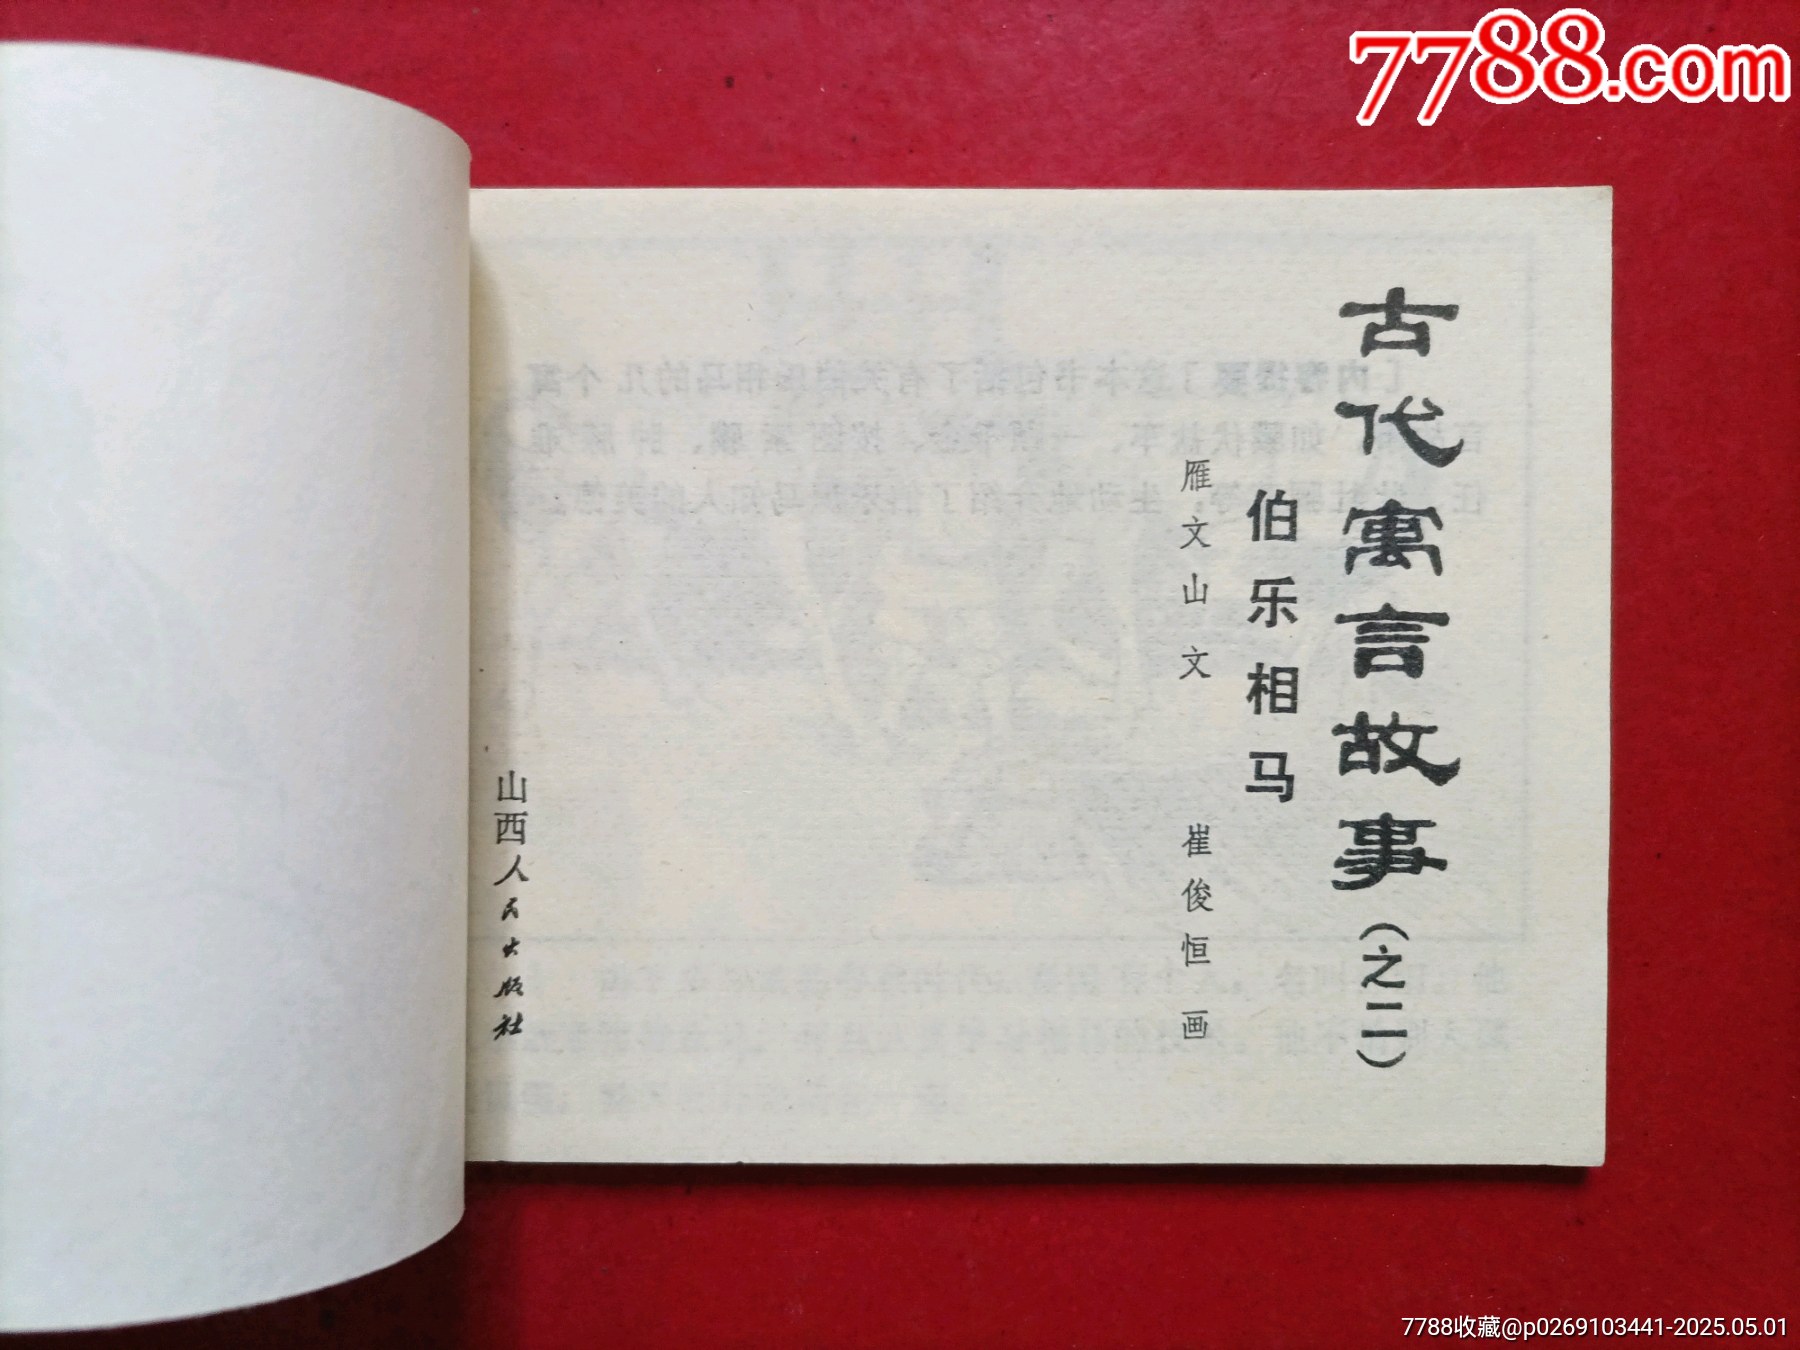 7788.com
古代寓言故事（之二）
伯乐相马
雁文山文 崔俊恒画
山西人民出版社
7788收藏@p0269103441-2025.05.01